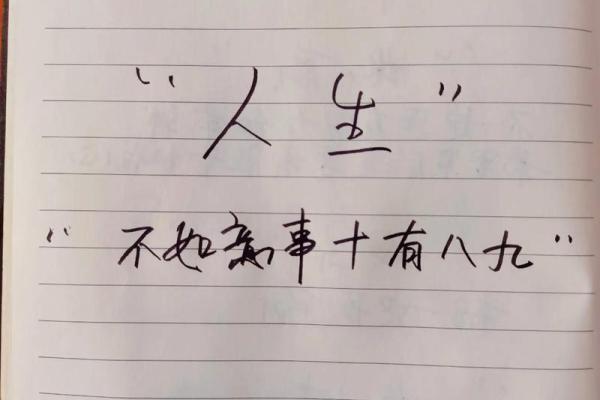 “人生”
“不如意事十有八九”